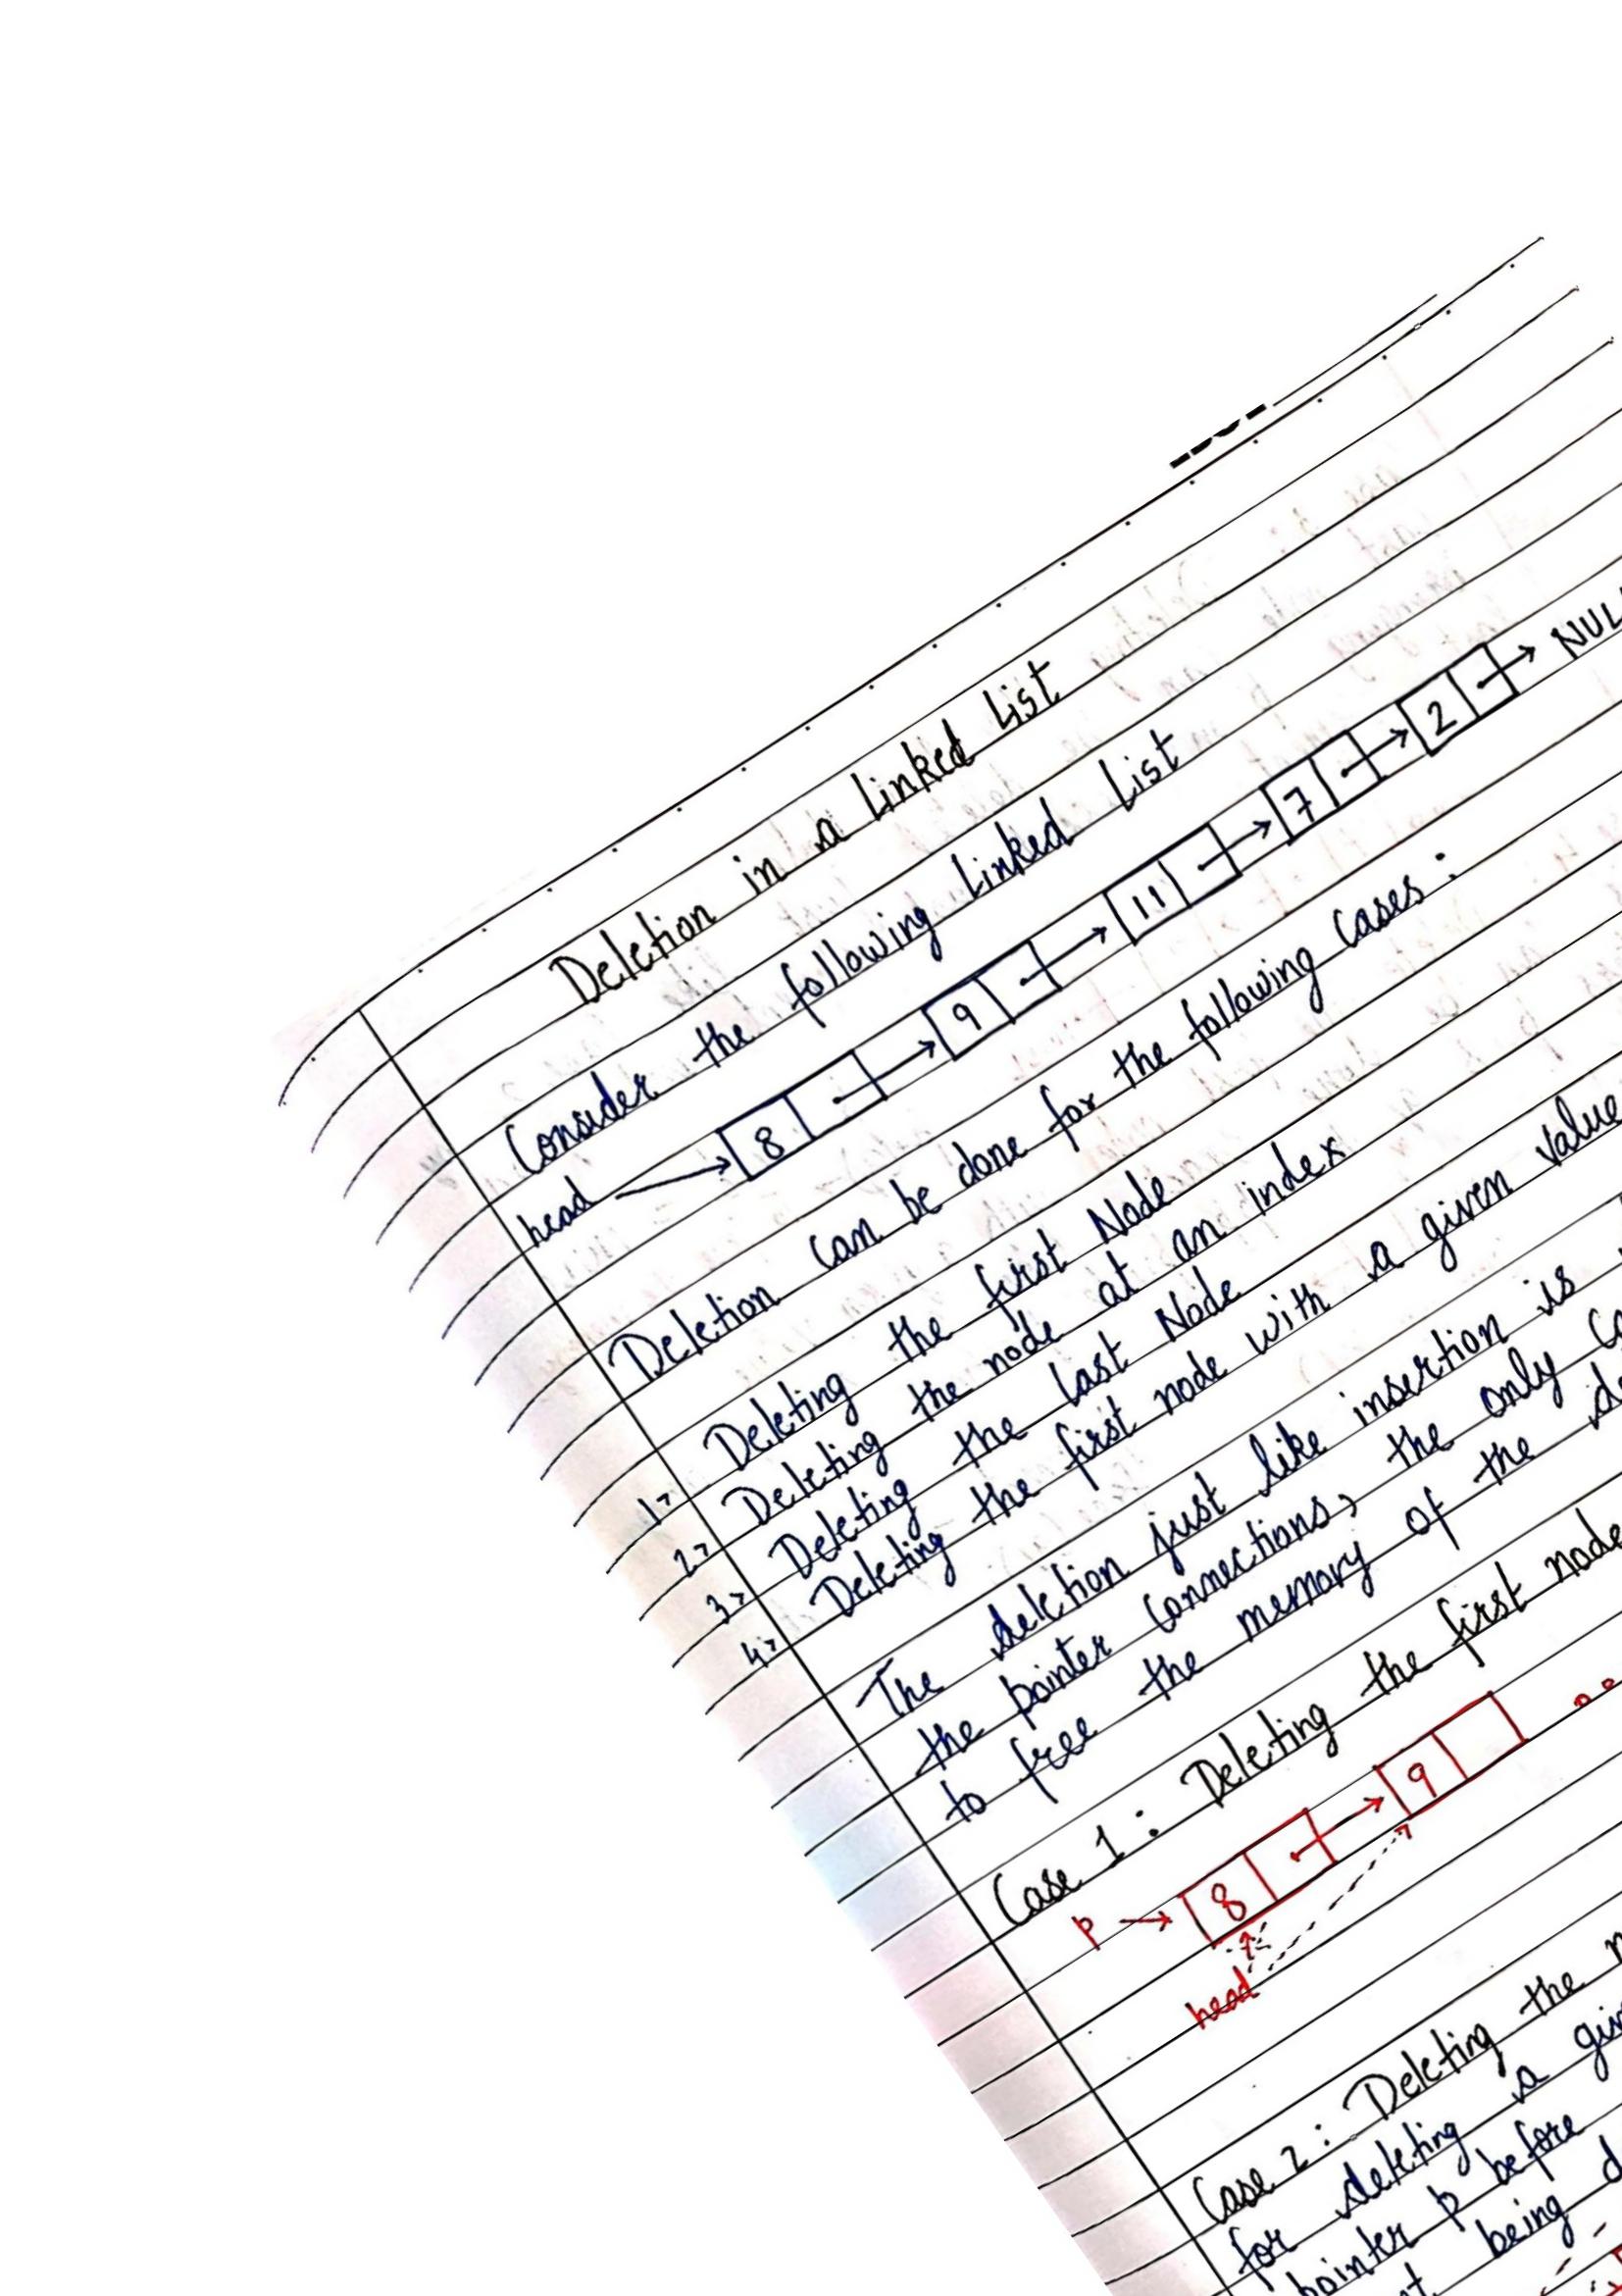 Deletion in a Linked List
Consider the following Linked List
head → 8 → 9 → 11 → 7 → 2 → NUL
Deletion can be done for the following cases :
1> Deleting the first Node
2> Deleting the node at an index
3> Deleting the last Node
4> Deleting the first node with a given value
The deletion just like insertion is
the pointer connections, the only
to free the memory of the
Case 1 : Deleting the first node
p → 8 → 9
head
Case 2 : Deleting the
for deleting a
pointer p before
being